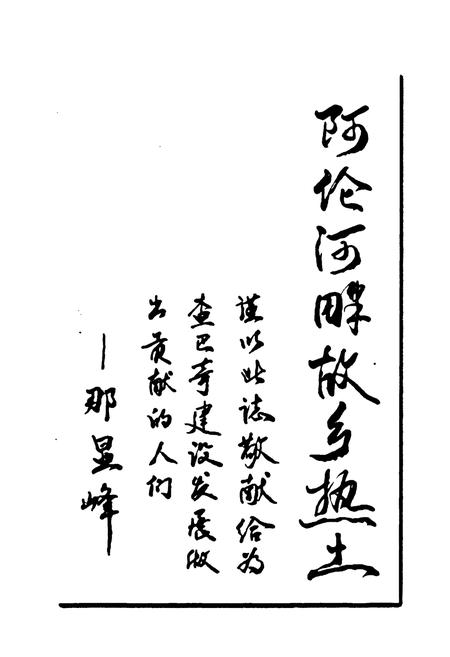 阿伦河畔故乡热土
谨以此志敬献给为
查巴奇建设发展做
出贡献的人们
—那显峰—